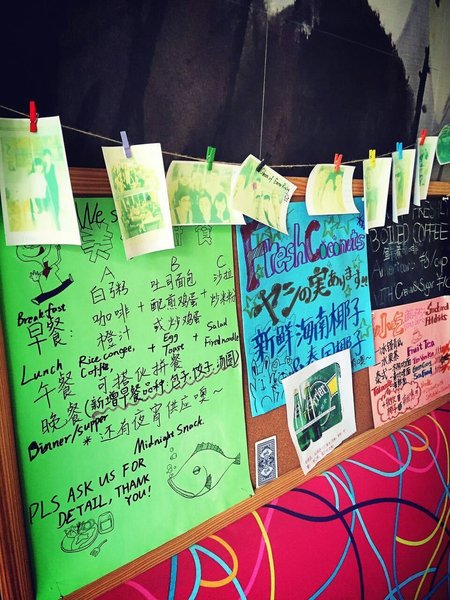 We s
食
A B C
Breakfast
早餐:
白粥 + 吐司面包 + 沙拉
咖啡 + 配煎鸡蛋 + 炒米粉
橙汁 或炒鸡蛋
Rice congee,
Coffee,
Egg
Toast
Salad
Fried noodle
Lunch
午餐: 可搭伙拼餐
晚餐 (新增早餐品种,包子,饺子,汤圆)
Dinner/Supper
* 还有夜宵供应噢~
Midnight Snack.
PLS ASK US FOR
DETAIL, THANK
YOU!
Fresh Coconuts
ヤシの実あります!!
新鲜海南椰子
泰国椰子
Sprite
BOILED COFFEE
/CUP
WITH CREAM & SUGAR
小吃
Fruit Tea